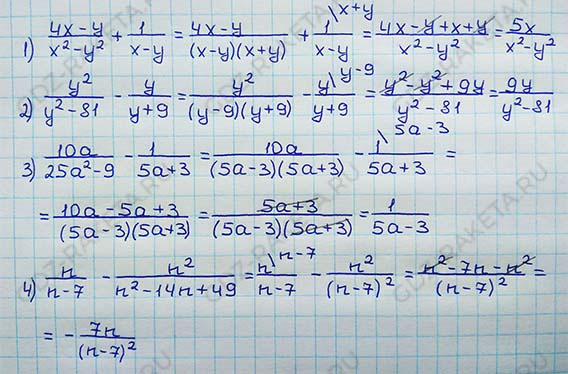 1) (4x-y)/(x²-y²) + 1/(x-y) = (4x-y)/((x-y)(x+y)) + 1\x+y/(x-y) = (4x-y+x+y)/(x²-y²) = 5x/(x²-y²)
2) y²/(y²-81) - y/(y+9) = y²/((y-9)(y+9)) - y\y-9/(y+9) = (y²-y²+9y)/(y²-81) = 9y/(y²-81)
3) 10a/(25a²-9) - 1/(5a+3) = 10a/((5a-3)(5a+3)) - 1\5a-3/(5a+3) =
= (10a-5a+3)/((5a-3)(5a+3)) = (5a+3)/((5a-3)(5a+3)) = 1/(5a-3)
4) n/(n-7) - n²/(n²-14n+49) = n\n-7/(n-7) - n²/(n-7)² = (n²-7n-n²)/(n-7)² =
= - 7n/(n-7)²
GDZ-RAKETA.RU
GDZ-RAKETA.RU